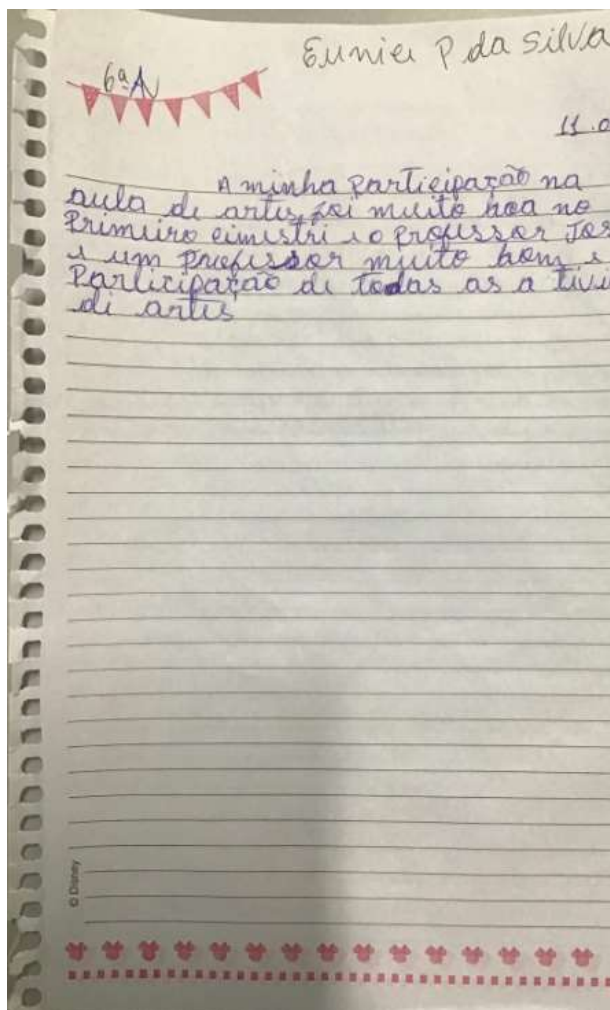 Eunice P da Silva
6ª A
11.0
A minha Participação na
aula de artes, foi muito boa no
Primeiro cimestri e o professor Jos
e um professor muito bom e
Participação de todas as a tivi
di artes
© Disney